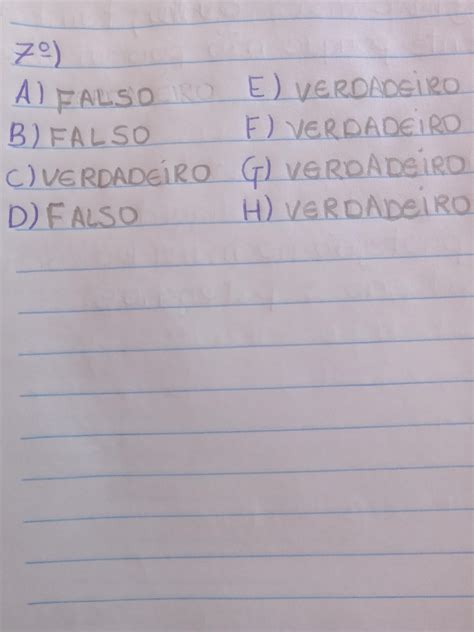 7º)
A) FALSO E) VERDADEIRO
B) FALSO F) VERDADEIRO
C) VERDADEIRO G) VERDADEIRO
D) FALSO H) VERDADEIRO